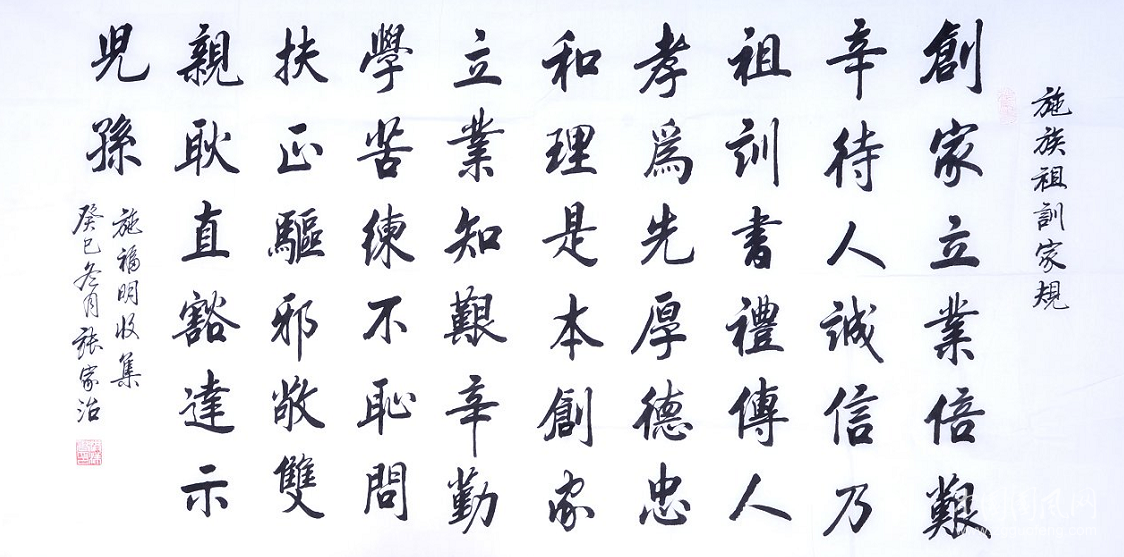 施族祖訓家規
創家立業倍艱
辛待人誠信乃
祖訓書禮傳人
孝爲先厚德忠
和理是本創家
立業知艱辛勤
學苦練不恥問
扶正驅邪敬雙
親耿直豁達示
児孫
施福明收集
癸巳冬月張家治